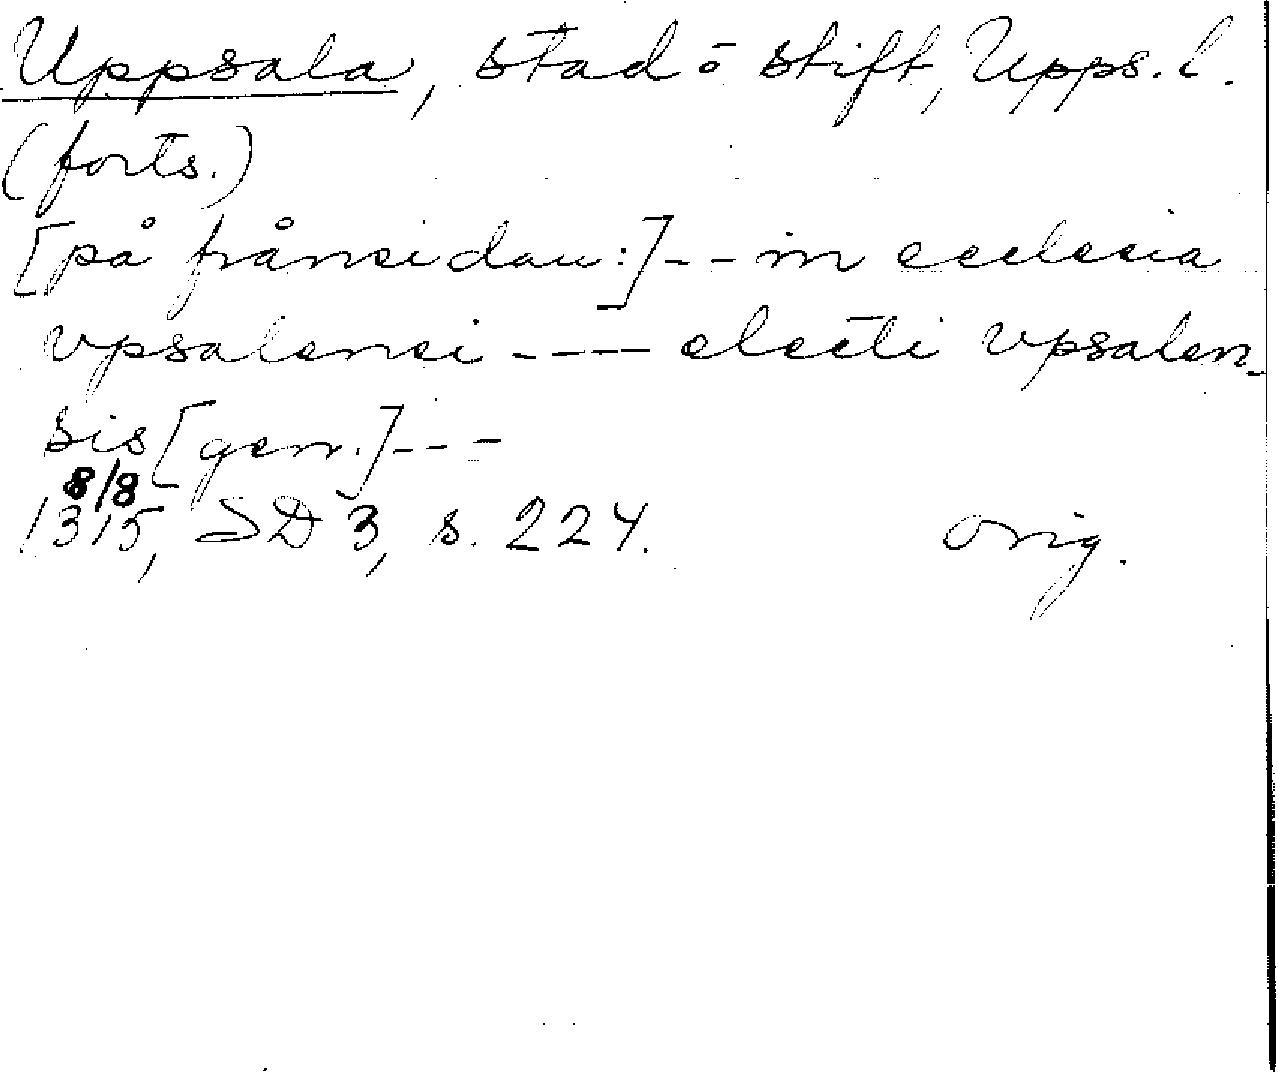 Uppsala, stad o stift, Upps. l.
(forts.)
[på frånsidan:]-- in ecclesia
vpsalensi ---- electi vpsalen-
sis [gen.]---
8/8
1315, SD 3, s. 224. orig.